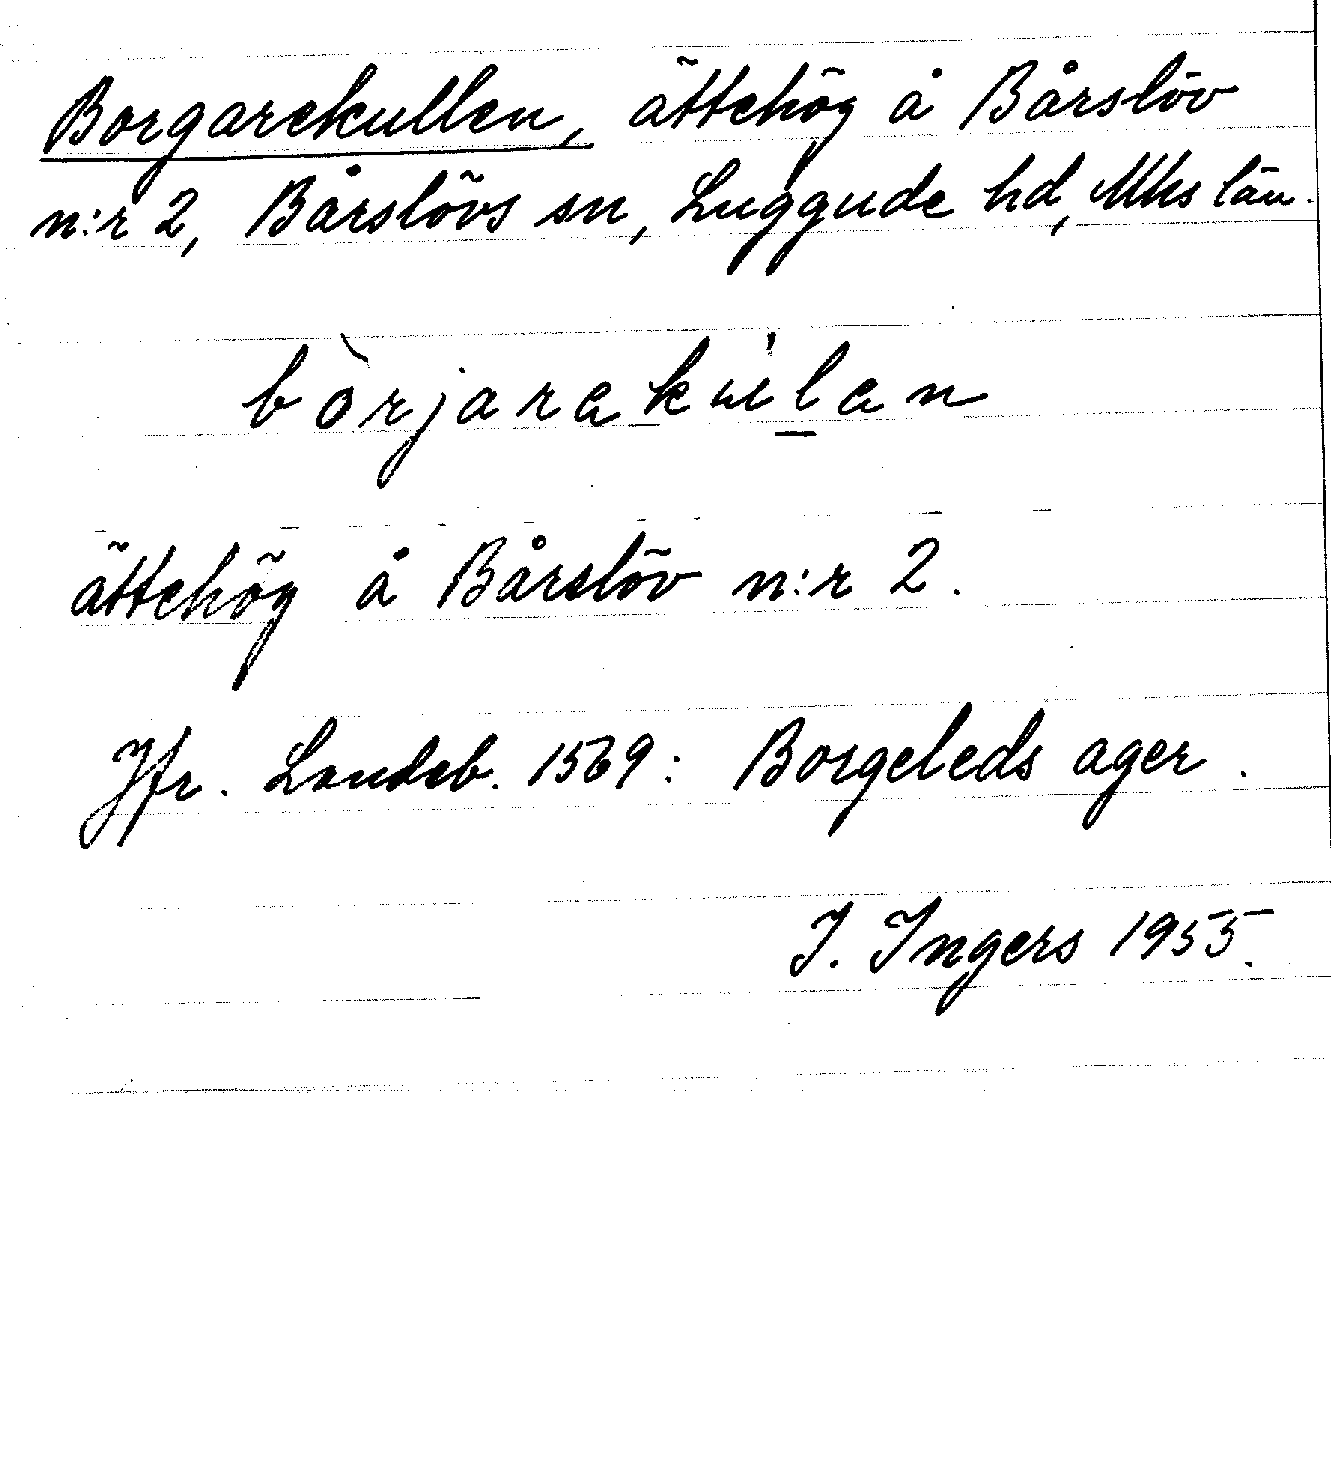 Borgarekullen, ättehög å Bårslöv
n:r 2, Bårslövs sn, Luggude hd, Mhs län.
bòrjarakúlan
ättehög å Bårslöv n:r 2.
Jfr. Landeb. 1569: Borgeleds ager.
I. Ingers 1955.